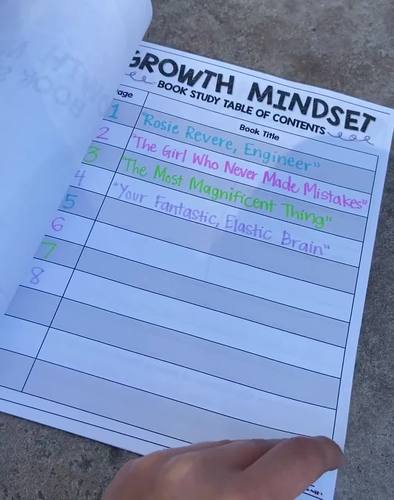 GROWTH MINDSET
BOOK STUDY TABLE OF CONTENTS
Book Title
1 "Rosie Revere, Engineer"
2 "The Girl Who Never Made Mistakes"
3 "The Most Magnificent Thing"
4 "Your Fantastic, Elastic Brain"
5
6
7
8